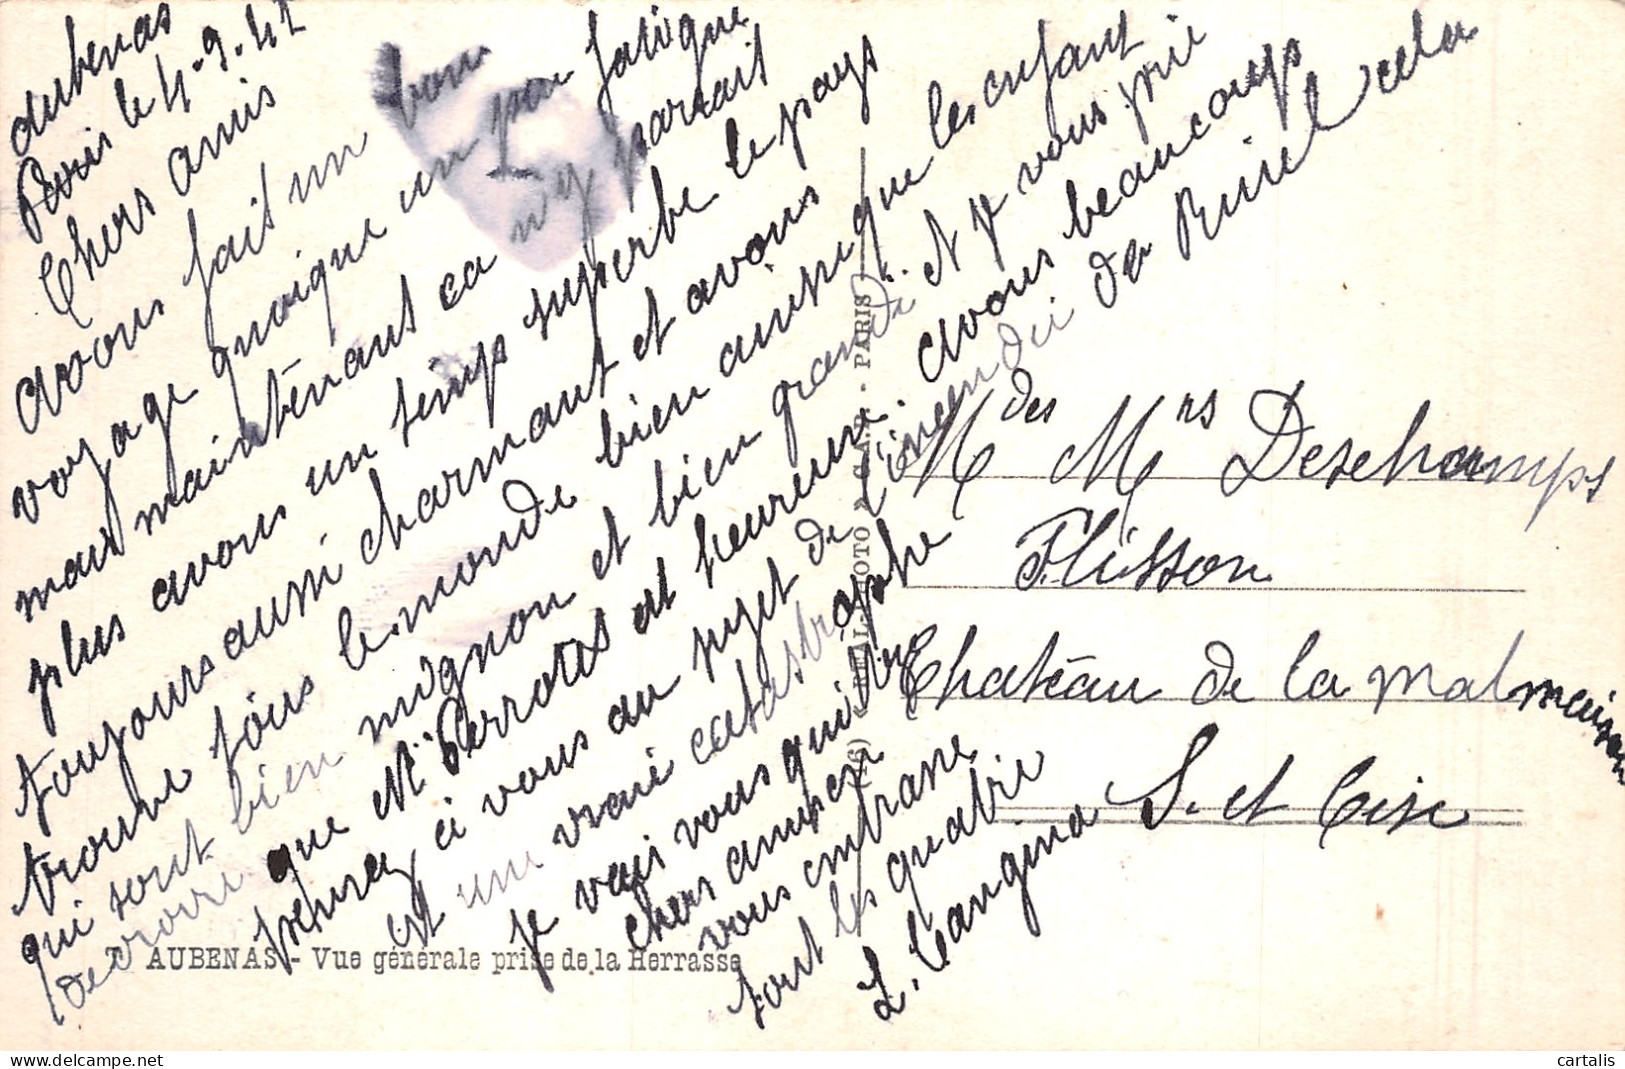 Aubenas
Paris le 4-9-42
Chers amis
avons fait un bon
voyage quoique un peu fatigue
mais maintenant ca n'y parait
plus avons un temps superbe le pays
toujours aussi charmant et avons
trouve tous le monde bien ainsi que les enfant
qui sont bien mignon et bien grandi. et je vous prie
de croire que Mr Perrotes et heureux. avons beaucoup
penser a vous au sujet de l'incendi de Ruiel cela
est une vrai catastrophe
je vais vous quitter
chers amis en
vous embrasse
tout les quatre
L. Cangina
Mdes Mrs Deschamps
Flisson
Chateau de la Malmaison
S. et Oise
7. AUBENAS - Vue générale prise de la Herrasse
PARIS
cartalis